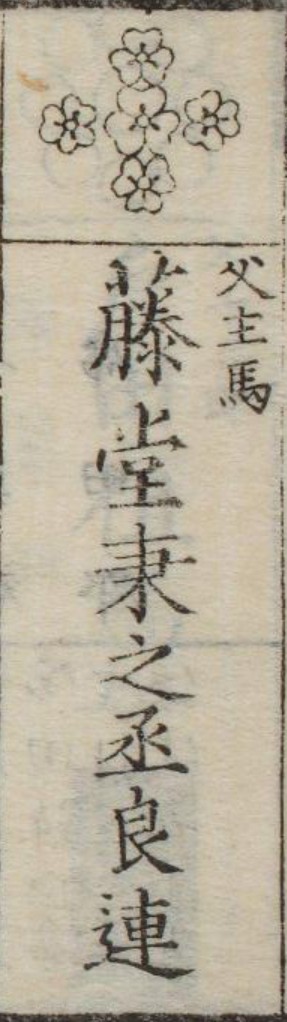 父主馬
藤堂秉之丞良連